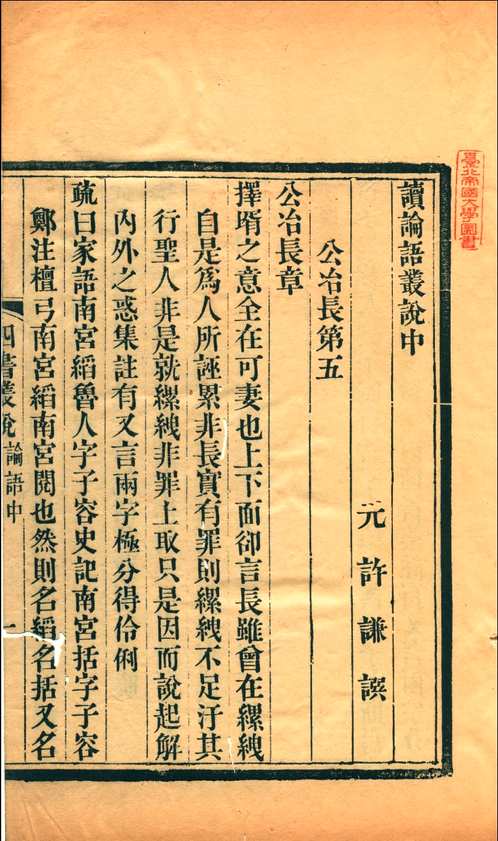 臺北帝國大學圖書
讀論語叢說中
元許謙譔
公冶長第五
公冶長章
擇壻之意全在可妻也上下面卻言長雖曾在縲絏
自是爲人所誣累非長實有罪則縲絏不足汙其
行聖人非是就縲絏非罪上取只是因而說起解
內外之惑集註有又言兩字極分得伶俐
疏曰家語南宮縚魯人字子容史記南宮括字子容
鄭注檀弓南宮縚南宮閱也然則名縚名括又名
四書叢說論語中 一